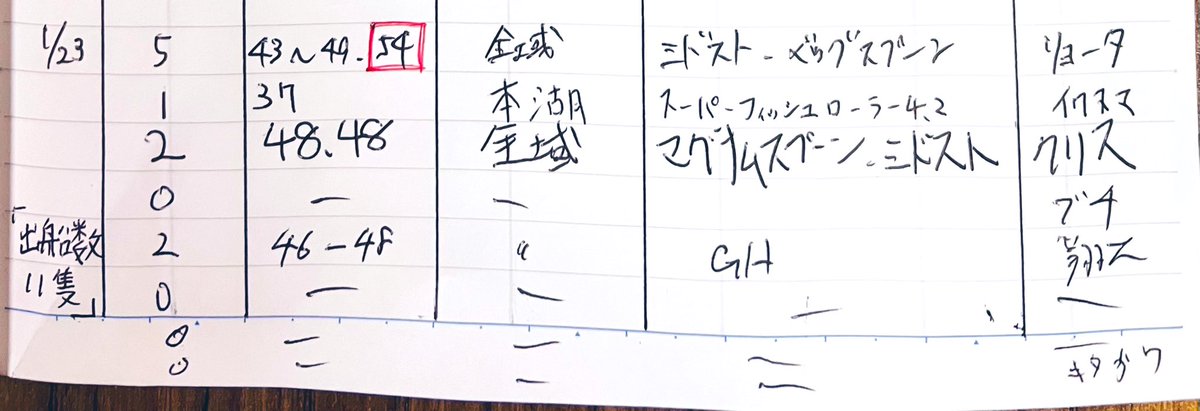 1/23 5 43〜49.54 全域 ミドスト - ビッグスプーン ショータ
1 37 本湖 スーパーフィッシュローラー4.2 イワヌマ
2 48.48 全域 マグナムスプーン.ミドスト クリス
0 ー ー ブチ
「出船数 2 46-48 〃 GH
11隻」 0 ー ー ー ー
0 ー ー ー ー
0 ー ー ー